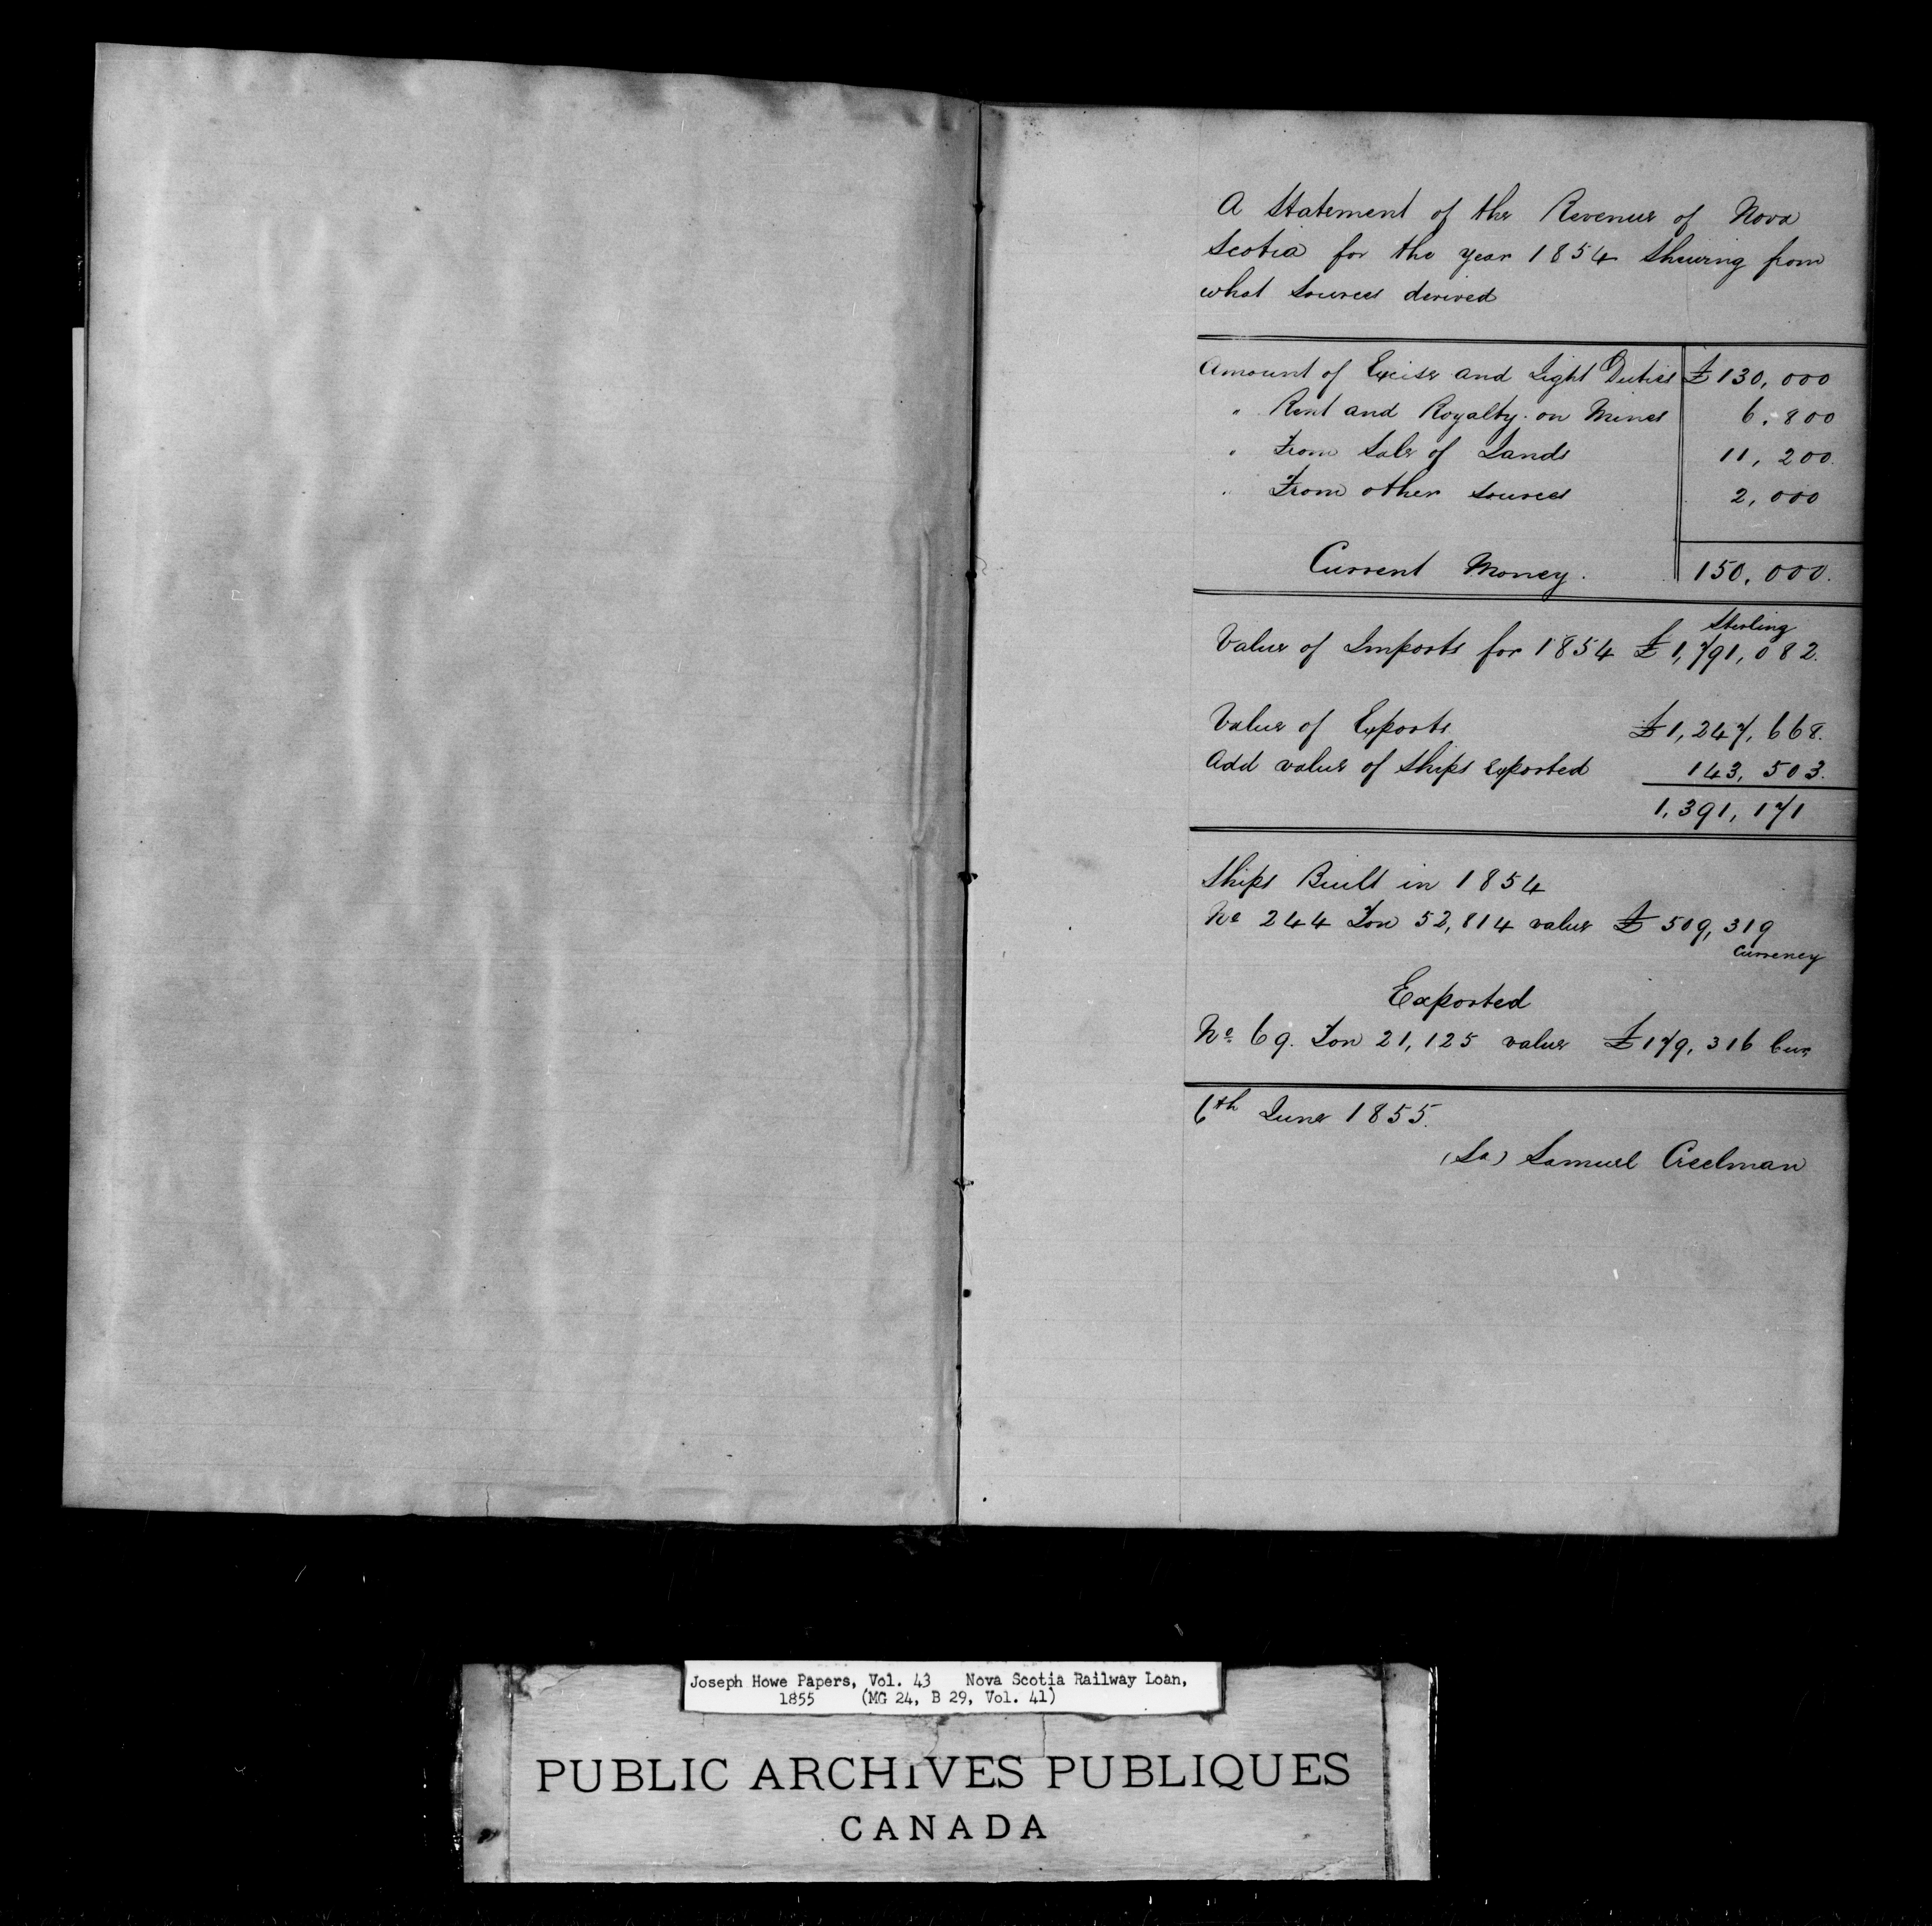 A Statement of the Revenue of Nova
Scotia for the year 1854 Shewing from
what Sources derived
Amount of Excise and Light Duties £130,000
" Rent and Royalty on Mines 6,800
" From Sale of Lands 11,200.
" From other sources 2,000
Current Money. 150,000.
Sterling
Value of Imports for 1854 £1,791,082.
Value of Exports £1,247,668.
Add value of Ships exported 143,503.
1,391,171
Ships Built in 1854
No 244 Ton 52,814 value £509,319
Currency
Exported
No 69. Ton 21,125 value £179,316 Cur,
6th June 1855.
(Sd) Samuel Creelman
Joseph Howe Papers, Vol. 43 Nova Scotia Railway Loan,
1855 (MG 24, B 29, Vol. 41)
PUBLIC ARCHIVES PUBLIQUES
CANADA